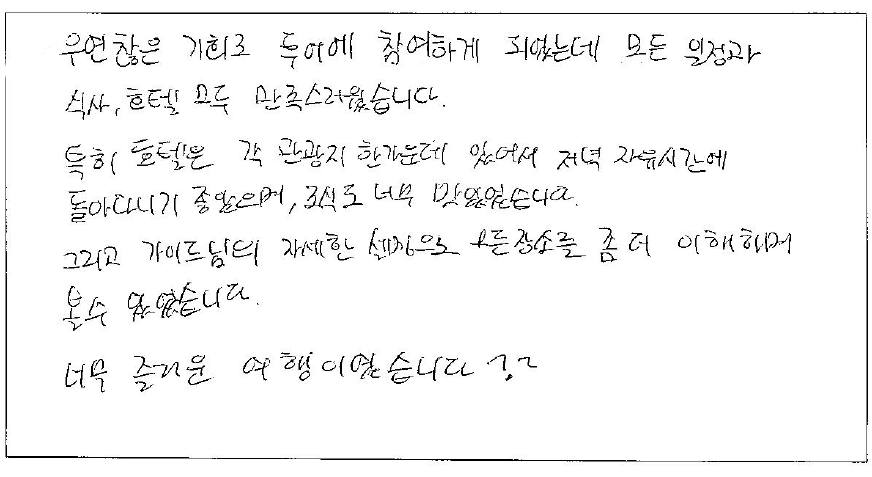 우연찮은 기회로 투어에 참여하게 되었는데 모든 일정과
식사, 호텔 모두 만족스러웠습니다.
특히 호텔은 각 관광지 한가운데 있어서 저녁 자유시간에
돌아다니기 좋았으며, 조식도 너무 맛있었습니다.
그리고 가이드님의 자세한 설명으로 모든장소를 좀 더 이해하며
볼수 있었습니다.
너무 즐거운 여행이었습니다 ^^